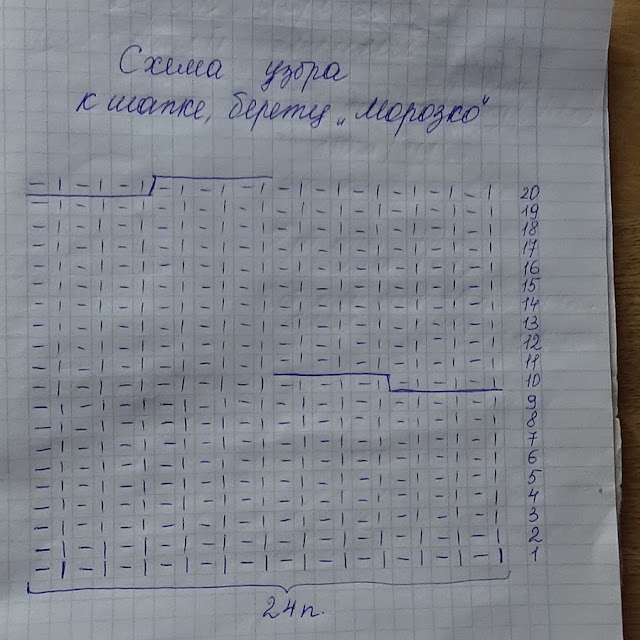 Схема узора
к шапке, берету „Морозко“
20
19
18
17
16
15
14
13
12
11
10
9
8
7
6
5
4
3
2
1
24 п.